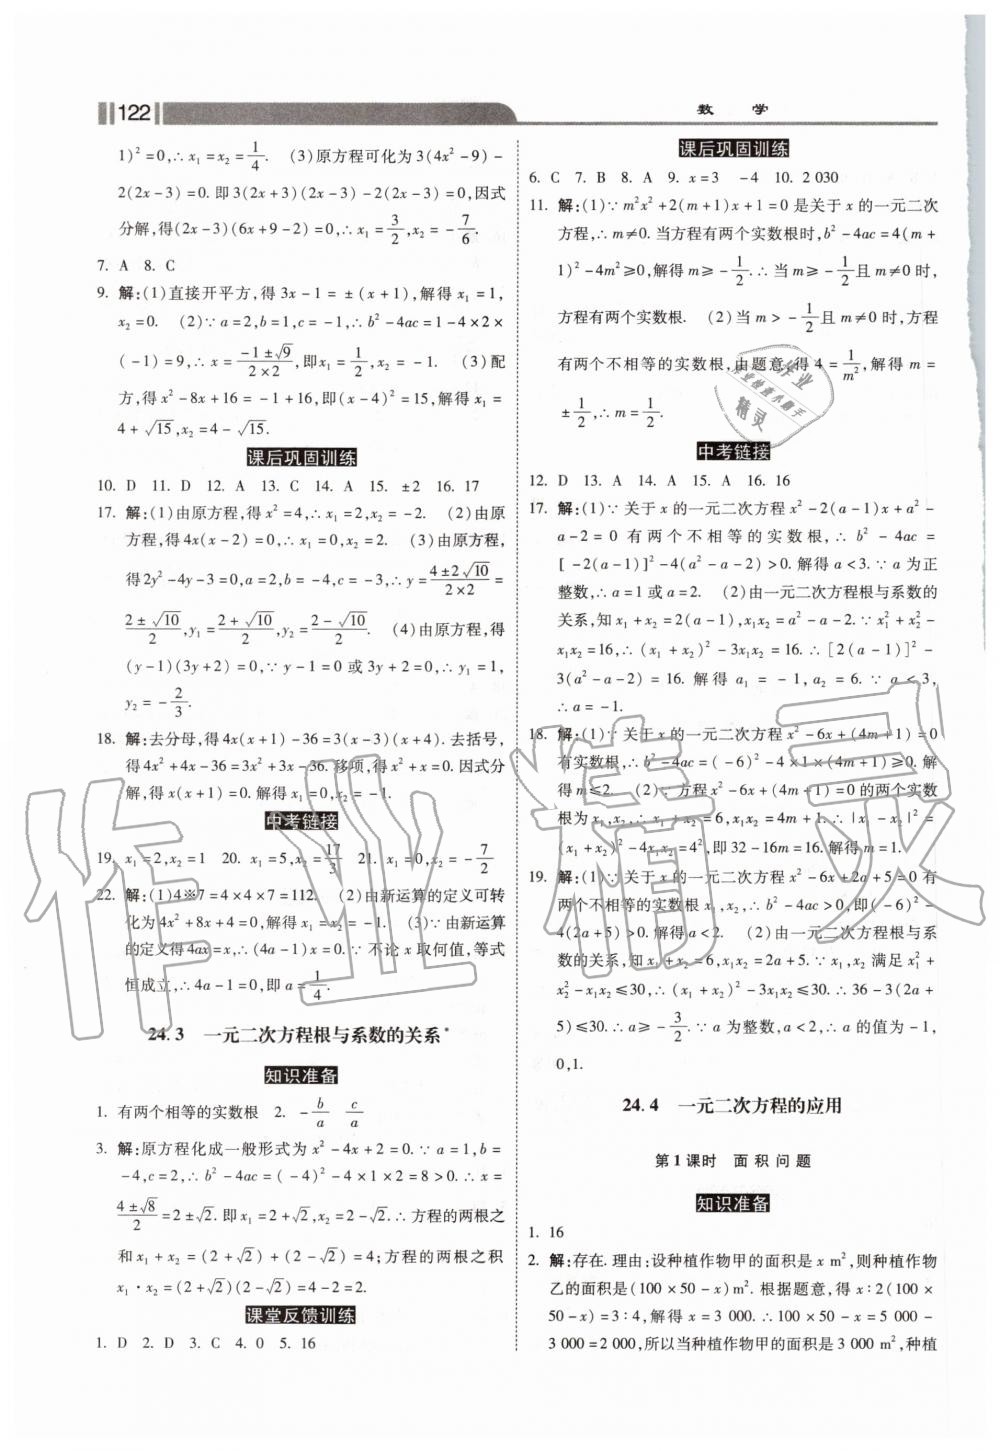 122
数 学
1)²=0,∴x₁=x₂=1/4. (3)原方程可化为3(4x²-9)-
2(2x-3)=0.即3(2x+3)(2x-3)-2(2x-3)=0,因式
分解,得(2x-3)(6x+9-2)=0,∴x₁=3/2,x₂=-7/6.
7. A 8. C
9. 解:(1)直接开平方,得3x-1=±(x+1),解得x₁=1,
x₂=0. (2)∵a=2,b=1,c=-1,∴b²-4ac=1-4×2×
(-1)=9,∴x=(-1±√9)/(2×2),即x₁=1/2,x₂=-1. (3)配
方,得x²-8x+16=-1+16,即(x-4)²=15,解得x₁=
4+√15,x₂=4-√15.
课后巩固训练
10. D 11. D 12. A 13. C 14. A 15. ±2 16. 17
17. 解:(1)由原方程,得x²=4,∴x₁=2,x₂=-2. (2)由原
方程,得4x(x-2)=0,∴x₁=0,x₂=2. (3)由原方程,
得2y²-4y-3=0,a=2,b=-4,c=-3,∴y=(4±2√10)/(2×2)=
(2±√10)/2,y₁=(2+√10)/2,y₂=(2-√10)/2. (4)由原方程,得
(y-1)(3y+2)=0,∵y-1=0或3y+2=0,∴y₁=1,
y₂=-2/3.
18. 解:去分母,得4x(x+1)-36=3(x-3)(x+4).去括号,
得4x²+4x-36=3x²+3x-36.移项,得x²+x=0.因式分
解,得x(x+1)=0.解得x₁=0,x₂=-1.
中考链接
19. x₁=2,x₂=1 20. x₁=5,x₂=17/3 21. x₁=0,x₂=-7/2
22. 解:(1)4※7=4×4×7=112. (2)由新运算的定义可转
化为4x²+8x+4=0,解得x₁=x₂=-1. (3)∵由新运算
的定义得4ax=x,∴(4a-1)x=0.∵不论x取何值,等式
恒成立,∴4a-1=0,即a=1/4.
24.3 一元二次方程根与系数的关系*
知识准备
1. 有两个相等的实数根 2. -b/a c/a
3. 解:原方程化成一般形式为x²-4x+2=0.∵a=1,b=
-4,c=2,∴b²-4ac=(-4)²-4×1×2=8>0.∴x=
(4±√8)/2=2±√2.即x₁=2+√2,x₂=2-√2.∴方程的两根之
和x₁+x₂=(2+√2)+(2-√2)=4;方程的两根之积
x₁·x₂=(2+√2)(2-√2)=4-2=2.
课堂反馈训练
1. D 2. D 3. C 4. 0 5. 16
课后巩固训练
6. C 7. B 8. A 9. x=3 -4 10. 2 030
11. 解:(1)∵m²x²+2(m+1)x+1=0是关于x的一元二次
方程,∴m≠0.当方程有两个实数根时,b²-4ac=4(m+
1)²-4m²≥0,解得m≥-1/2.∴当m≥-1/2且m≠0时,
方程有两个实数根. (2)当m>-1/2且m≠0时,方程
有两个不相等的实数根,由题意,得4=1/m²,解得m=
±1/2,∴m=1/2.
中考链接
12. D 13. A 14. A 15. A 16. 16
17. 解:(1)∵关于x的一元二次方程x²-2(a-1)x+a²-
a-2=0有两个不相等的实数根,∴b²-4ac=
[-2(a-1)]²-4(a²-a-2)>0.解得a<3.∵a为正
整数,∴a=1或a=2. (2)由一元二次方程根与系数的
关系,知x₁+x₂=2(a-1),x₁x₂=a²-a-2.∵x₁²+x₂²-
x₁x₂=16,∴(x₁+x₂)²-3x₁x₂=16.∴[2(a-1)]²-
3(a²-a-2)=16.解得a₁=-1,a₂=6.∵a<3,
∴a=-1.
18. 解:(1)∵关于x的一元二次方程x²-6x+(4m+1)=0
有实数根,∴b²-4ac=(-6)²-4×1×(4m+1)≥0.解
得m≤2. (2)∵方程x²-6x+(4m+1)=0的两个实数
根为x₁,x₂,∴x₁+x₂=6,x₁x₂=4m+1.∴|x₁-x₂|²=
(x₁+x₂)²-4x₁x₂=4²,即32-16m=16.解得m=1.
19. 解:(1)∵关于x的一元二次方程x²-6x+2a+5=0有
两个不相等的实数根x₁,x₂,∴b²-4ac>0,即(-6)²-
4(2a+5)>0.解得a<2. (2)由一元二次方程根与系
数的关系,知x₁+x₂=6,x₁x₂=2a+5.∵x₁,x₂满足x₁²+
x₂²-x₁x₂≤30,∴(x₁+x₂)²-3x₁x₂≤30.∴36-3(2a+
5)≤30.∴a≥-3/2.∵a为整数,a<2,∴a的值为-1,
0,1.
24.4 一元二次方程的应用
第1课时 面积问题
知识准备
1. 16
2. 解:存在.理由:设种植作物甲的面积是x m²,则种植作物
乙的面积是(100×50-x)m².根据题意,得x∶2(100×
50-x)=3∶4,解得x=3 000.∴100×50-x=5 000-
3 000=2 000,所以当种植作物甲的面积是3 000 m²,种植
作业精灵